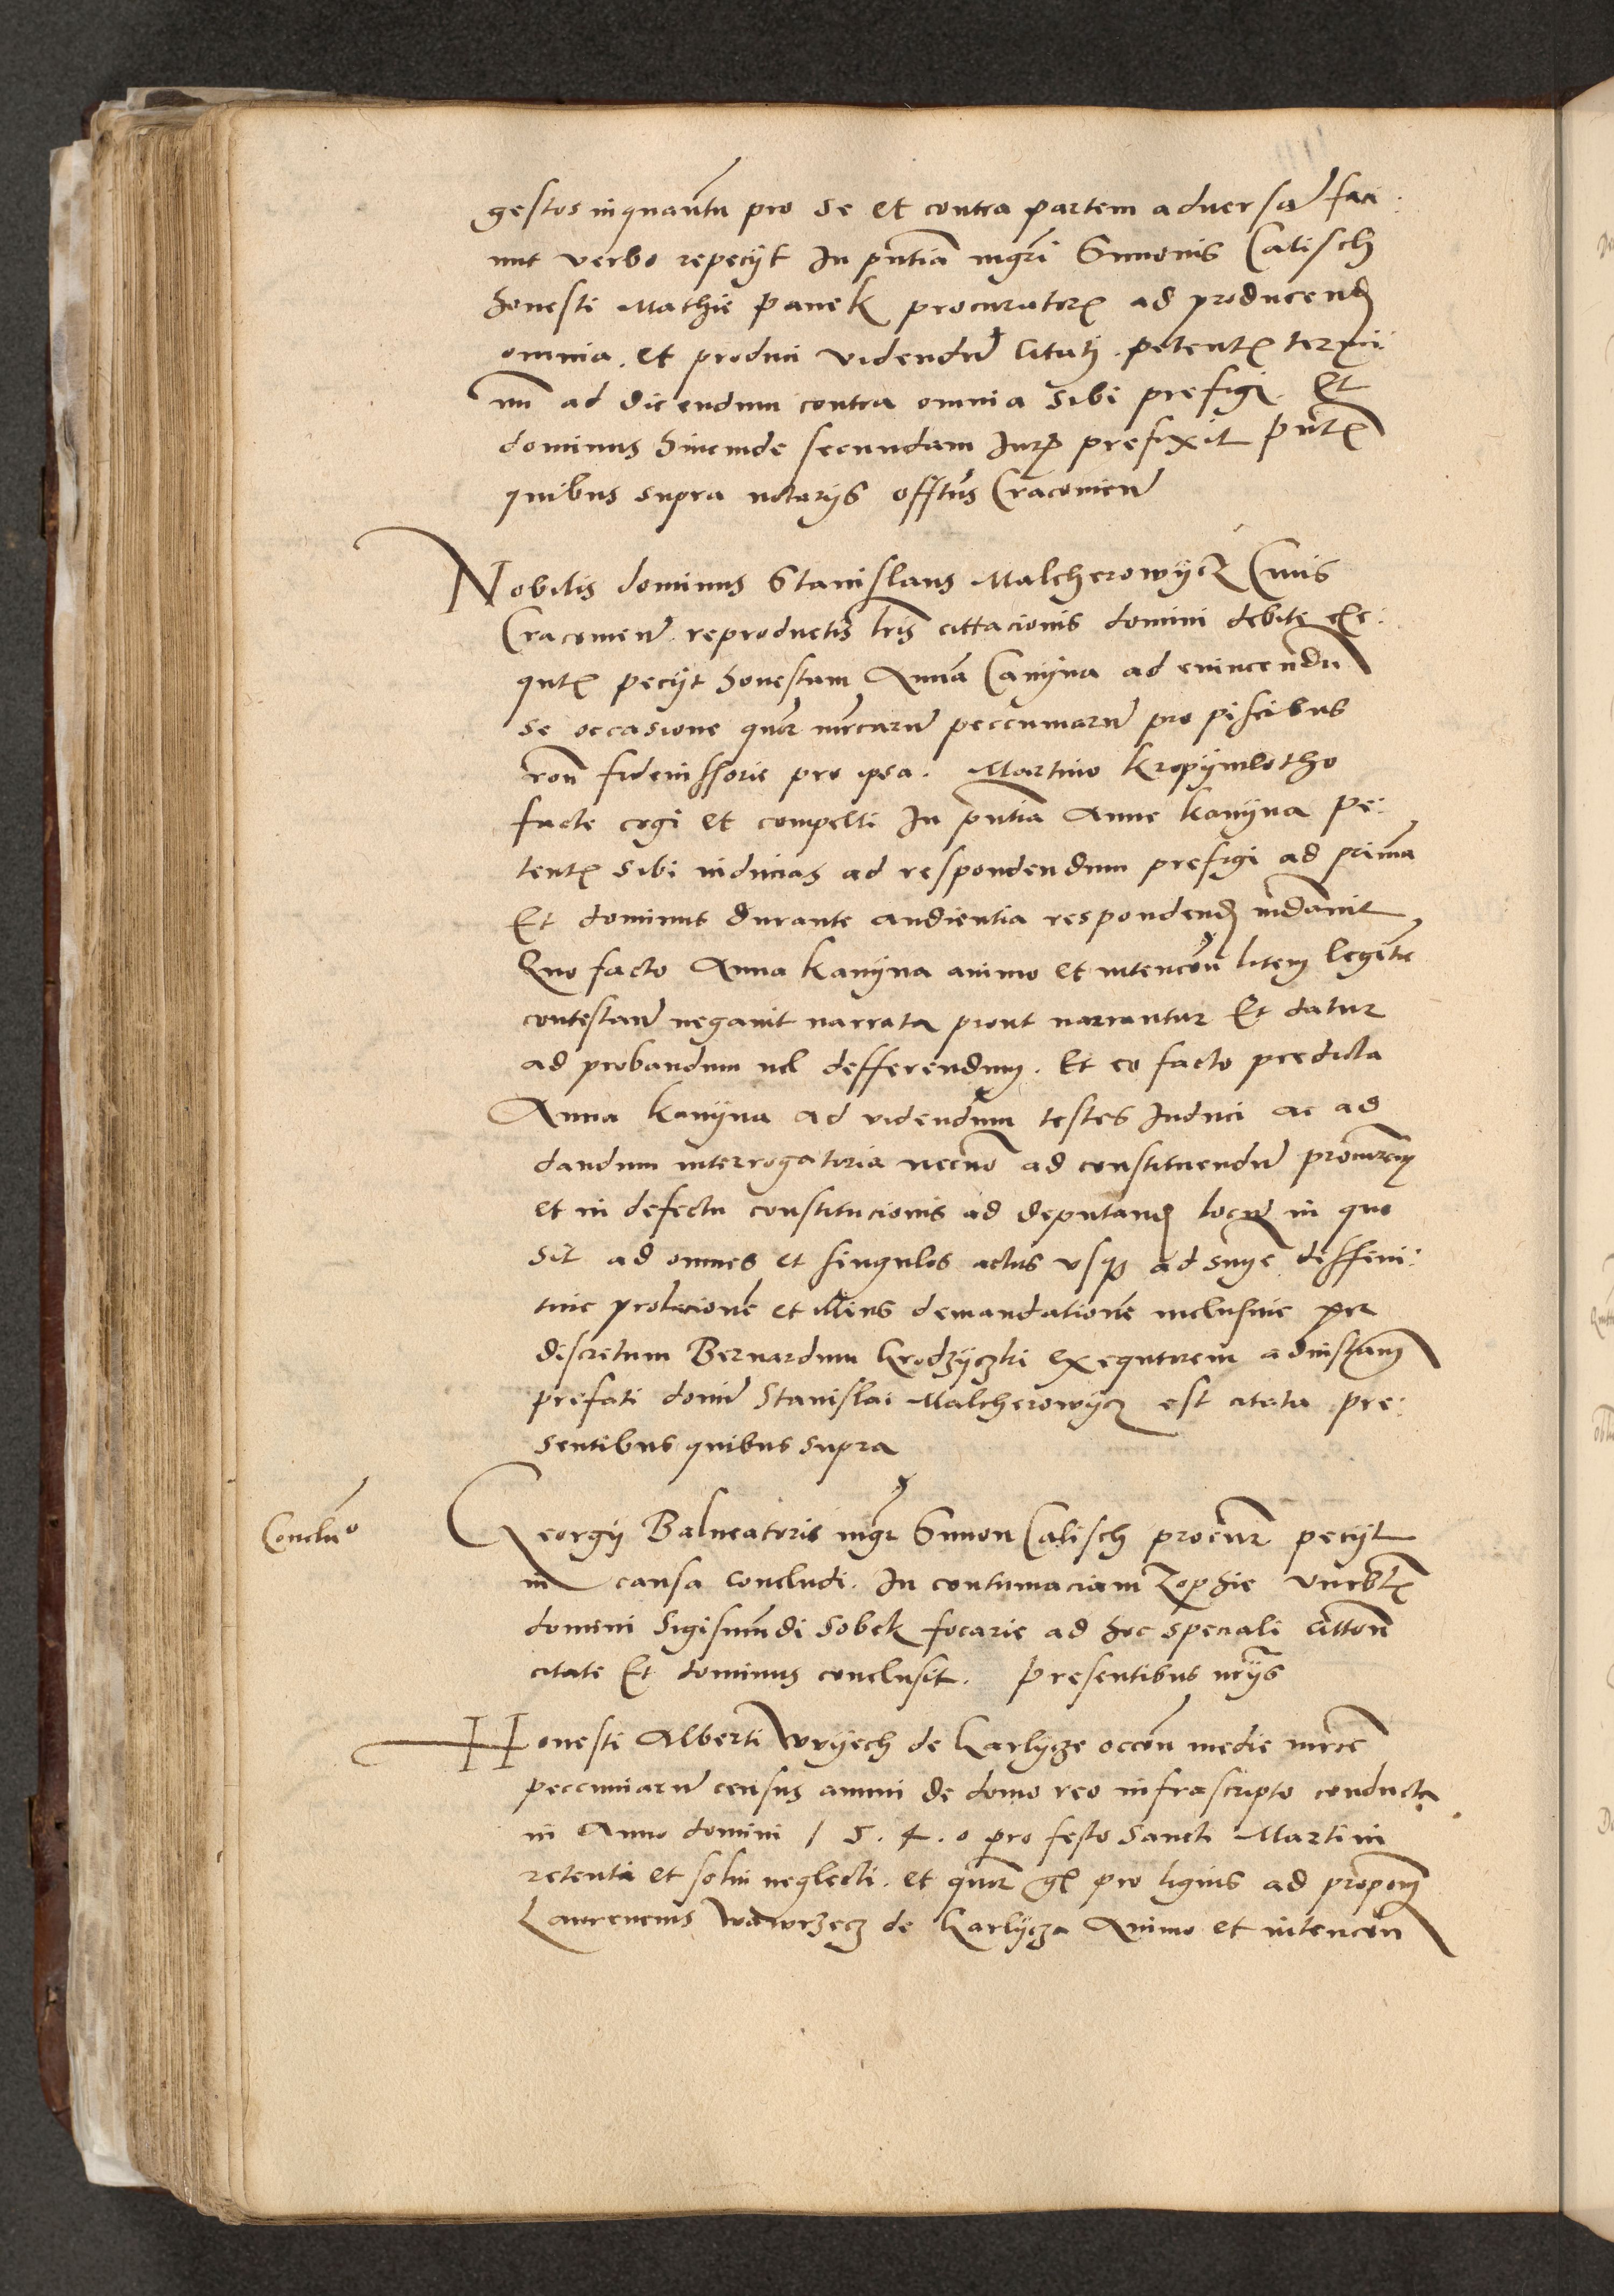 gestos inquantu pro se et contra partem aduersa faci:
unt verbo repecyt In pntia mgri Simonis Calisch
honesti Mathie Panek procuratoris ad producend
omnia et produci videndu citati petentis termi:
nu ad dicendum contra omnia sibi prefigi. Et
dominus hincinde secundam Iuris prefixit pntibus
quibus supra notarys Cracouien
Nobilis dominus Stanislaus Malcherowycz Ciuis
Cracouien reproductis lris cittacionis domini debite exe:
qutis pecyt honestam Anna Canyna ad euincendu
se occasione quor mrcaru peccuniaru pro piscibus
ron fideiussorie pro ipsa. Martino Kropymlotho
facte cogi et compelli In pntia Anne Kanyna pe:
tentis sibi inducias ad respondendum prefigi ad prima
Et dominus durante audientia respondend mdauit
Quo facto Anna Kanyna animo et intencon litem legitie
contestan negauit narrata prout narrantur Et datur
ad probandum vel defferendum. Et eo facto predicta
Anna Kanyna ad videndum testes Induci ac ad
dandum interrogatoria necno ad constituendu procurem
et in defectu constitucionis ad deputand locu in quo
sit ad omnes et singulos actus vsq ad snye diffini:
tiue prolacione et illius demandatione inclusiue per
discretum Bernardum Grodzyczki exequtorem ad instam
prefati domi Stanislai Malcherowycz est citata pre:
sentibus quibus supra
Conclu^o
Georgy Balneatoris mgr Simon Calisch procur pecyt
in causa concludi. In contumaciam Zophie
domini Sigismundi Sobek focarie ad hoc speciali citton
citate Et dominus conclusit. Presentibus nrys
Honesti Alberti Wryech de Karlycze occon medie mrce
peccuniaru census annui de domo reo infrascripto conducta
in Anno domini 1 5. 4. 0 pro festo Sancti Martini
retenti et solui neglecti. et quor gs pro lignis ad propom
Laurencius Wawrzecz de Karlycza Animo et intencon